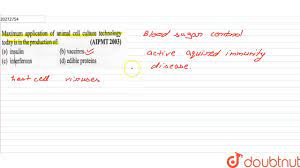 20272754
Maximum application of animal cell culture technology
today is in the production of (AIPMT 2003)
(a) insulin (b) vaccines
(c) interferons (d) edible proteins
Blood sugar control
active aquired immunity
disease.
host cell viruses
doubtnut